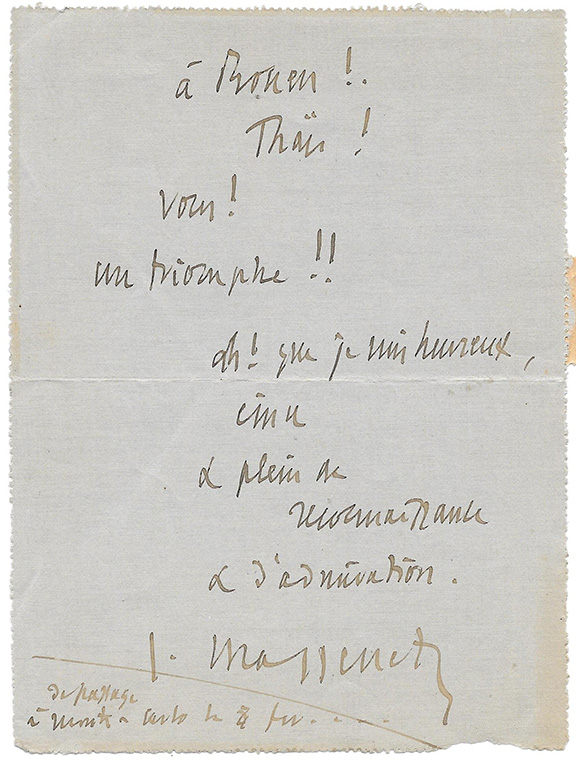 à Rouen !.
Thaïs !
vous !
un triomphe !!
ah ! que je suis heureux,
ému
& plein de
reconnaissance
& d'admiration.
J. Massenet
de passage
à Monte-Carlo le fev. ....